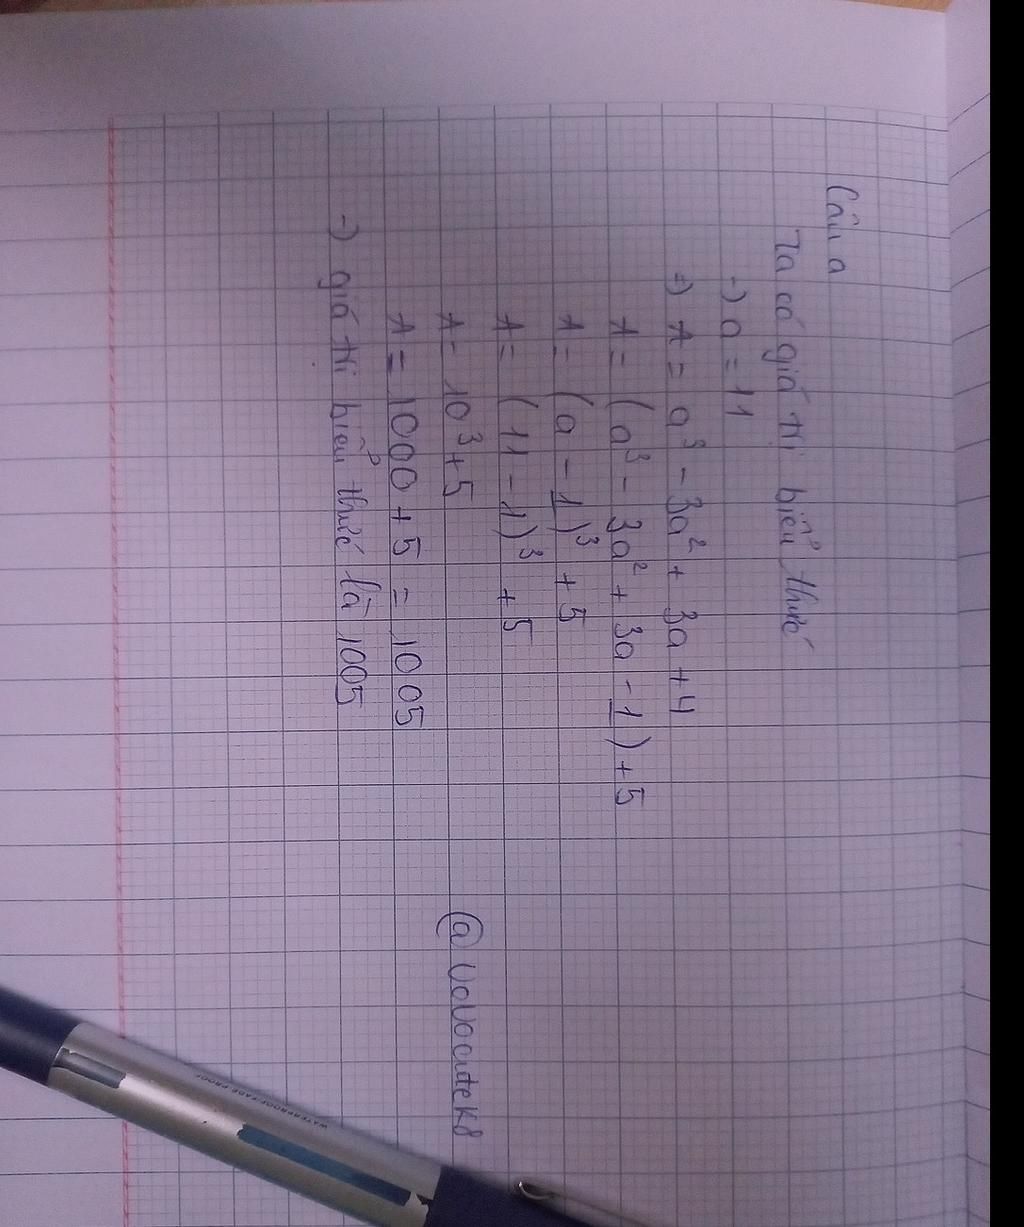 Câu a
Ta có giá trị biểu thức
-) a = 11
=) A = a³ - 3a² + 3a + 4
A = (a³ - 3a² + 3a - 1) + 5
A = (a - 1)³ + 5
A = (11 - 1)³ + 5
A = 10³ + 5
A = 1000 + 5 = 1005
-) giá trị biểu thức là 1005
@vovocuteK8
WATERPROOF FADE PROOF